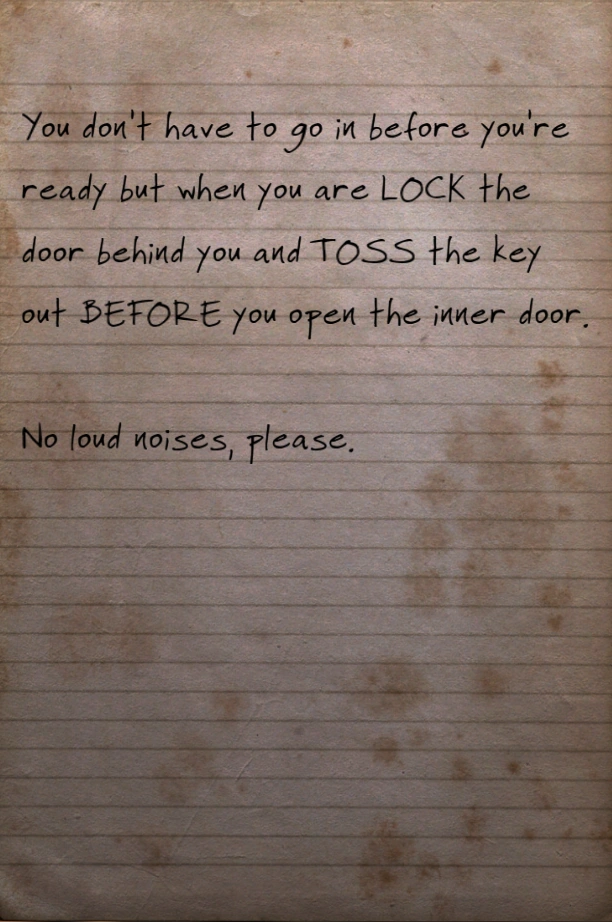 You don't have to go in before you're
ready but when you are LOCK the
door behind you and TOSS the key
out BEFORE you open the inner door.
No loud noises, please.